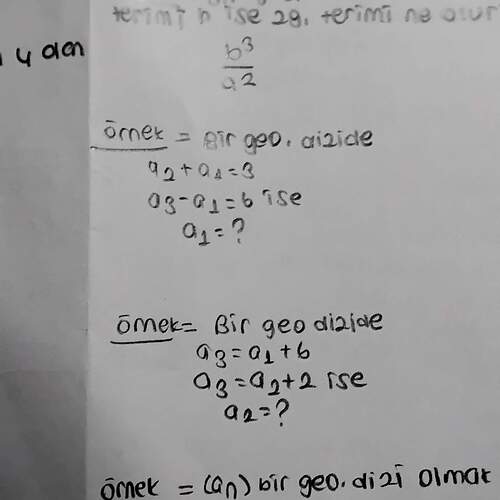 terimi b ise 28. terimi ne olur
b³/a²
4 den
örnek = Bir geo. dizide
a₂+a₁=3
a₃-a₁=6 ise
a₁=?
örnek= Bir geo dizide
a₃=a₁+6
a₃=a₂+2 ise
a₂=?
örnek = (aₙ) bir geo. dizi olmak